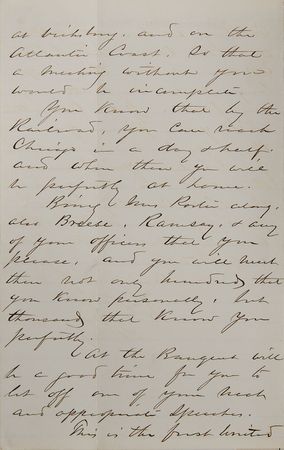 at Vicksburg. and on the
Atlantic Coast. So that
a meeting without you
would be incomplete
You Know that by the
Railroad, you can reach
Chicago in a day & half.
and when there you will
be perfectly at home.
Bring Mrs Porter along.
also Breese, Ramsay, & any
of your officers that you
please, and you will meet
there not only hundreds that
you Know personally, but
thousands that Know you
perfectly.
At the Banquet will
be a good time for you to
let off one of your neat
and appropriate Speeches.
This is the first United